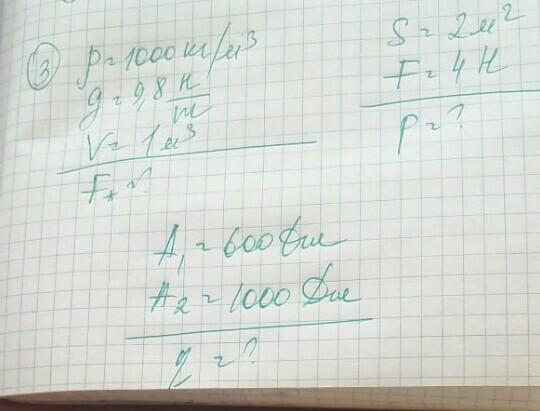 ③ ρ = 1000 кг/м³
g = 9,8 н/m
V = 1 м³
F = ?
S = 2 м²
F = 4 Н
P = ?
A₁ = 600 Дж
A₂ = 1000 Дж
η = ?